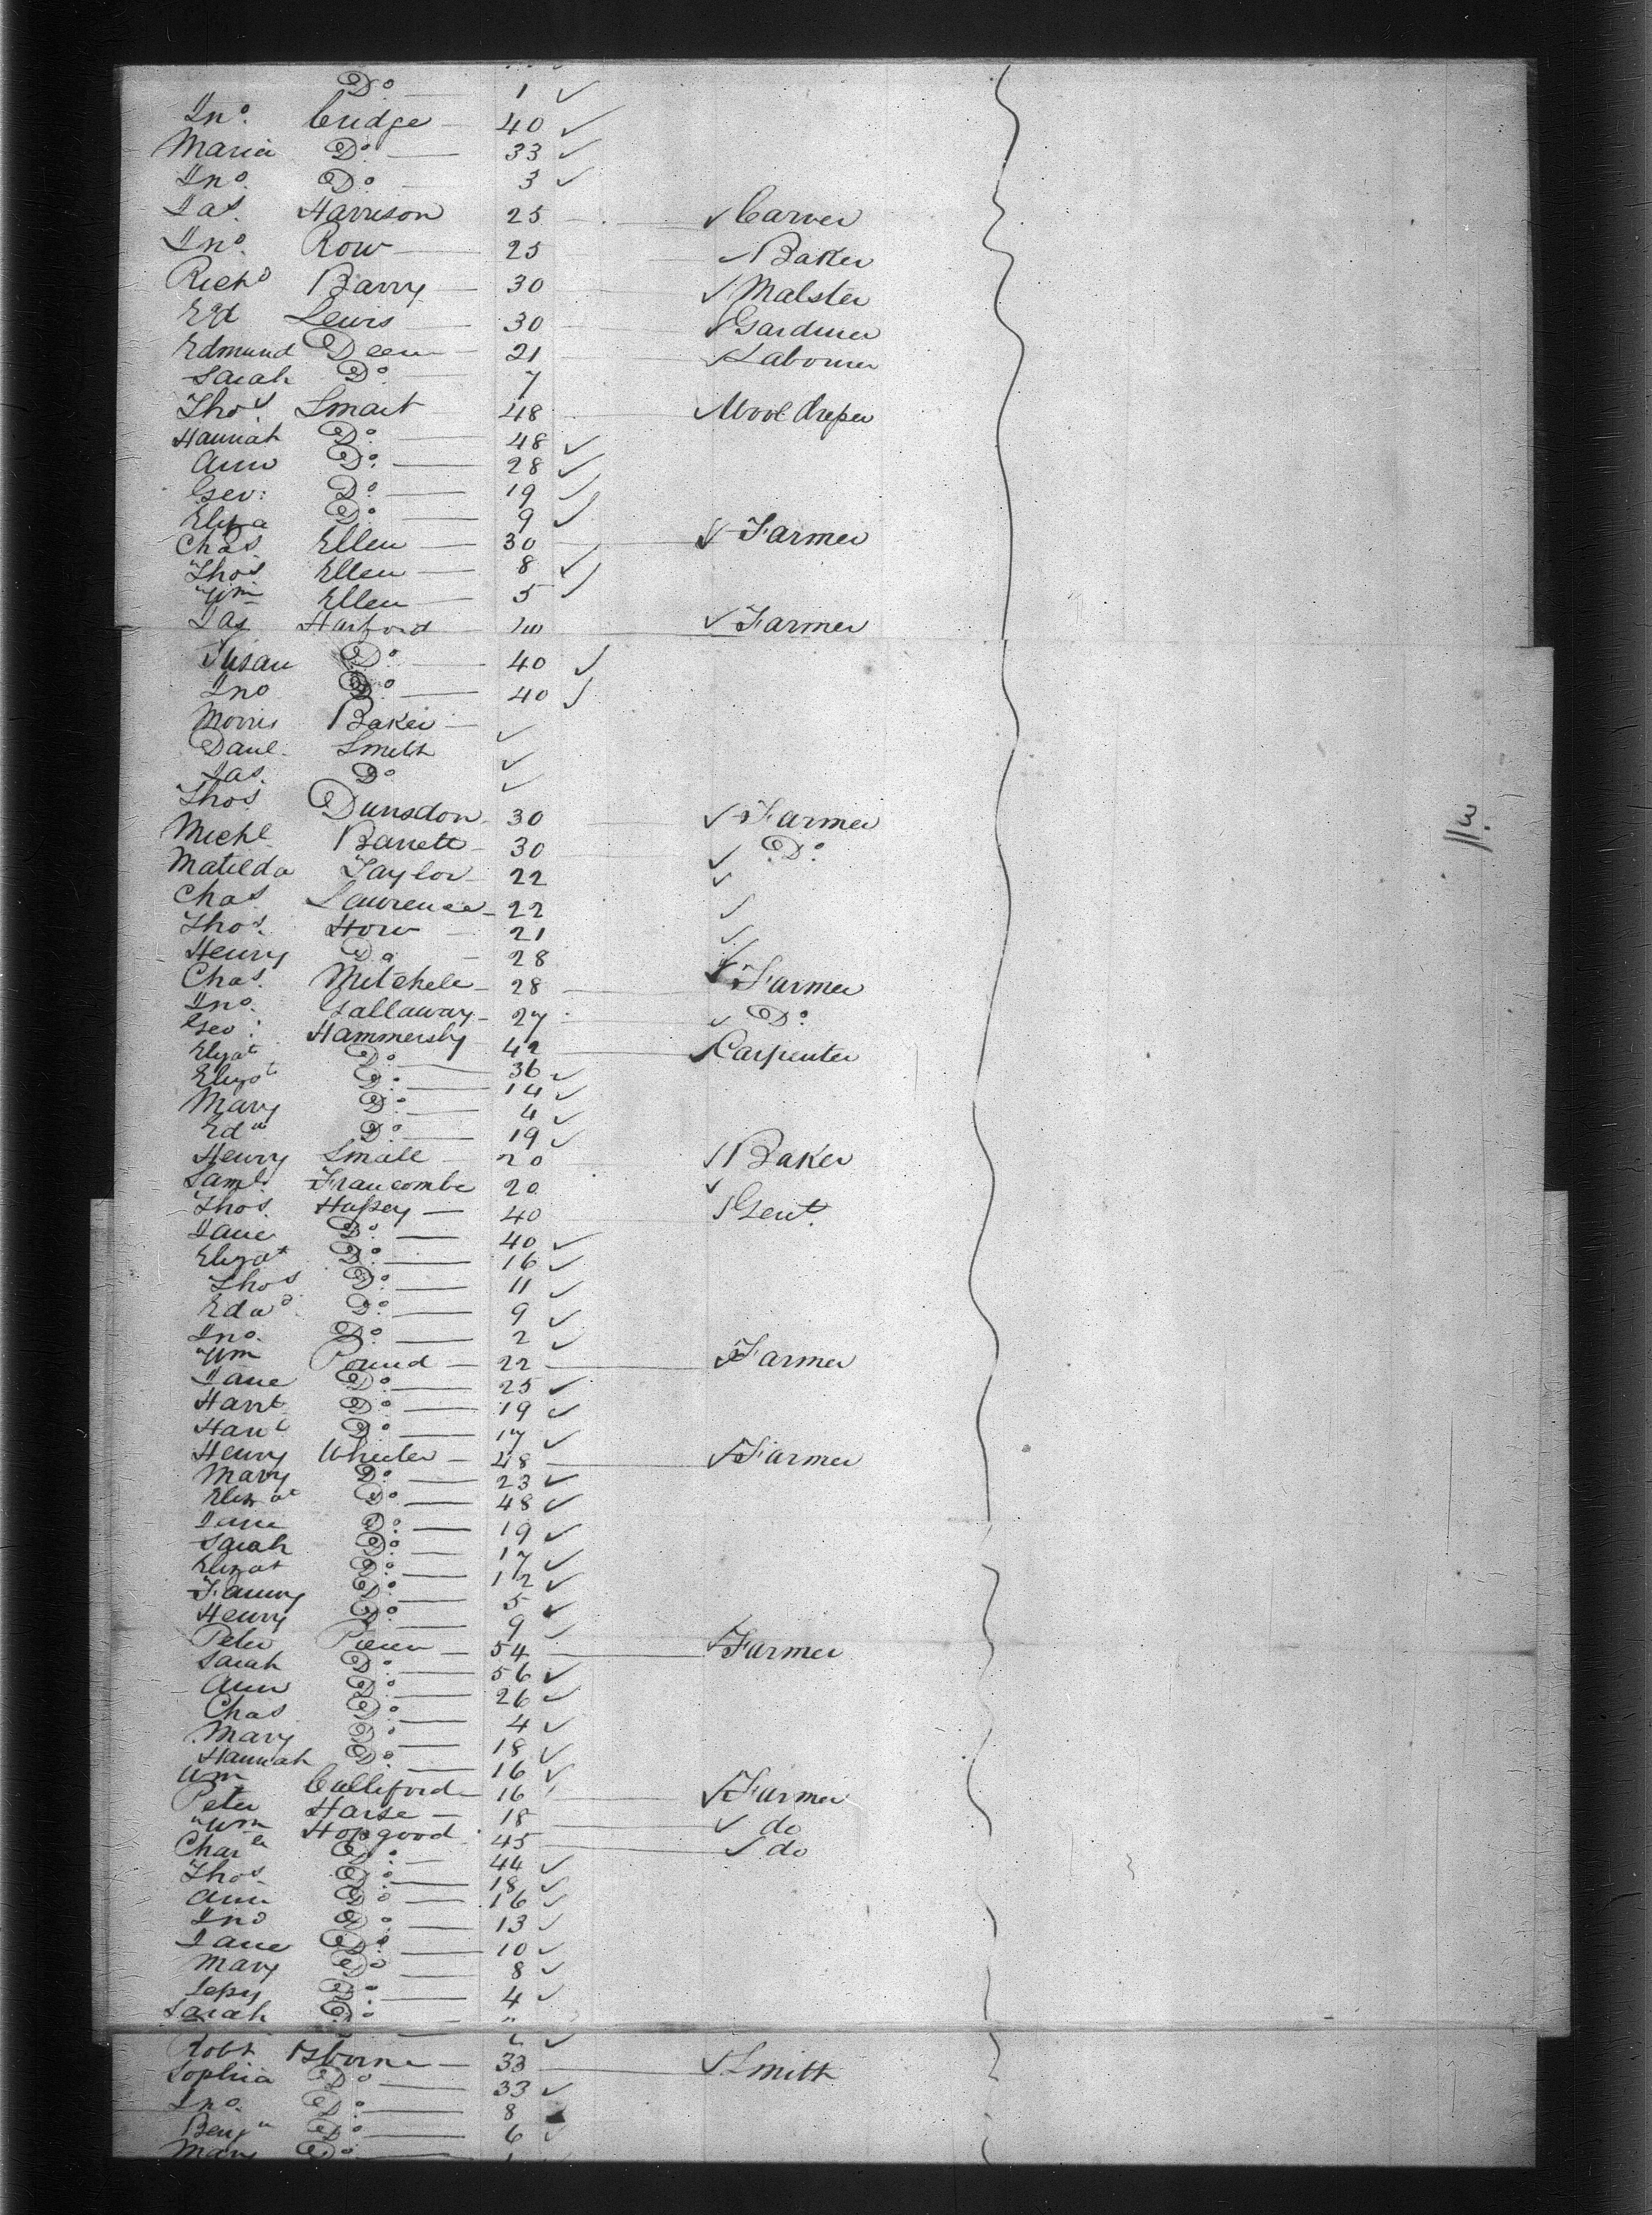 Do 1
Jno. Cridge 40
Maria Do 33
Jno. Do 3
Jas. Harrison 25 Carver
Jno. Row 25 Baker
Richd Barry 30 Malster
Ed Lewis 30 Gardiner
Edmund Deen 21 Labourer
Sarah Do 7
Thos. Smart 48 Wool draper
Hannah Do 48
Ann Do 28
Geo: Do 19
Eliza Do 9
Chas. Ellen 30 Farmer
Thos Ellen 8
Wm Ellen 5
Jas Harford 40 Farmer
Susan Do 40
Jno Do 40
Morris Baker
Danl. Smith
Jas. Do
Thos Dunsdon 30 Farmer
Michl Barrett 30 Do
Matilda Taylor 22
Chas. Lawrence 22
Thos. How 21
Henry Do 28
Chas. Mitchell 28 Farmer
Jno. Gallaway 27 Do
Geo: Hammersly 42 Carpenter
Elizat Do 36
Elizat Do 14
Mary Do 4
Edw Do 19
Henry Small 20 Baker
Saml. Francombe 20
Thos. Hussey 40 Gent.
Jane Do 40
Elizat Do 16
Thos Do 11
Edwd Do 9
Jno. Do 2
Wm Pound 22 Farmer
Jane Do 25
Hart Do 19
Hart Do 17
Henry Wheeler 48 Farmer
Mary Do 23
Elizat Do 48
Jane Do 19
Sarah Do 17
Elizat Do 12
Fanny Do 5
Henry Do 9
Peter Pierce 54 Farmer
Sarah Do 56
Ann Do 26
Chas Do 4
Mary Do 18
Hannah Do 16
Wm Culliford 16 Farmer
Peter Harse 18 do
Wm Hopgood 45 do
Charle Do 44
Thos. Do 18
Ann Do 16
Jno Do 13
Jane Do 10
Mary Do 8
Jessy Do 4
Sarah Do
Robt Osborne 33 Smith
Sophia Do 33
Jno. Do 8
Benjn Do 6
Mary Do